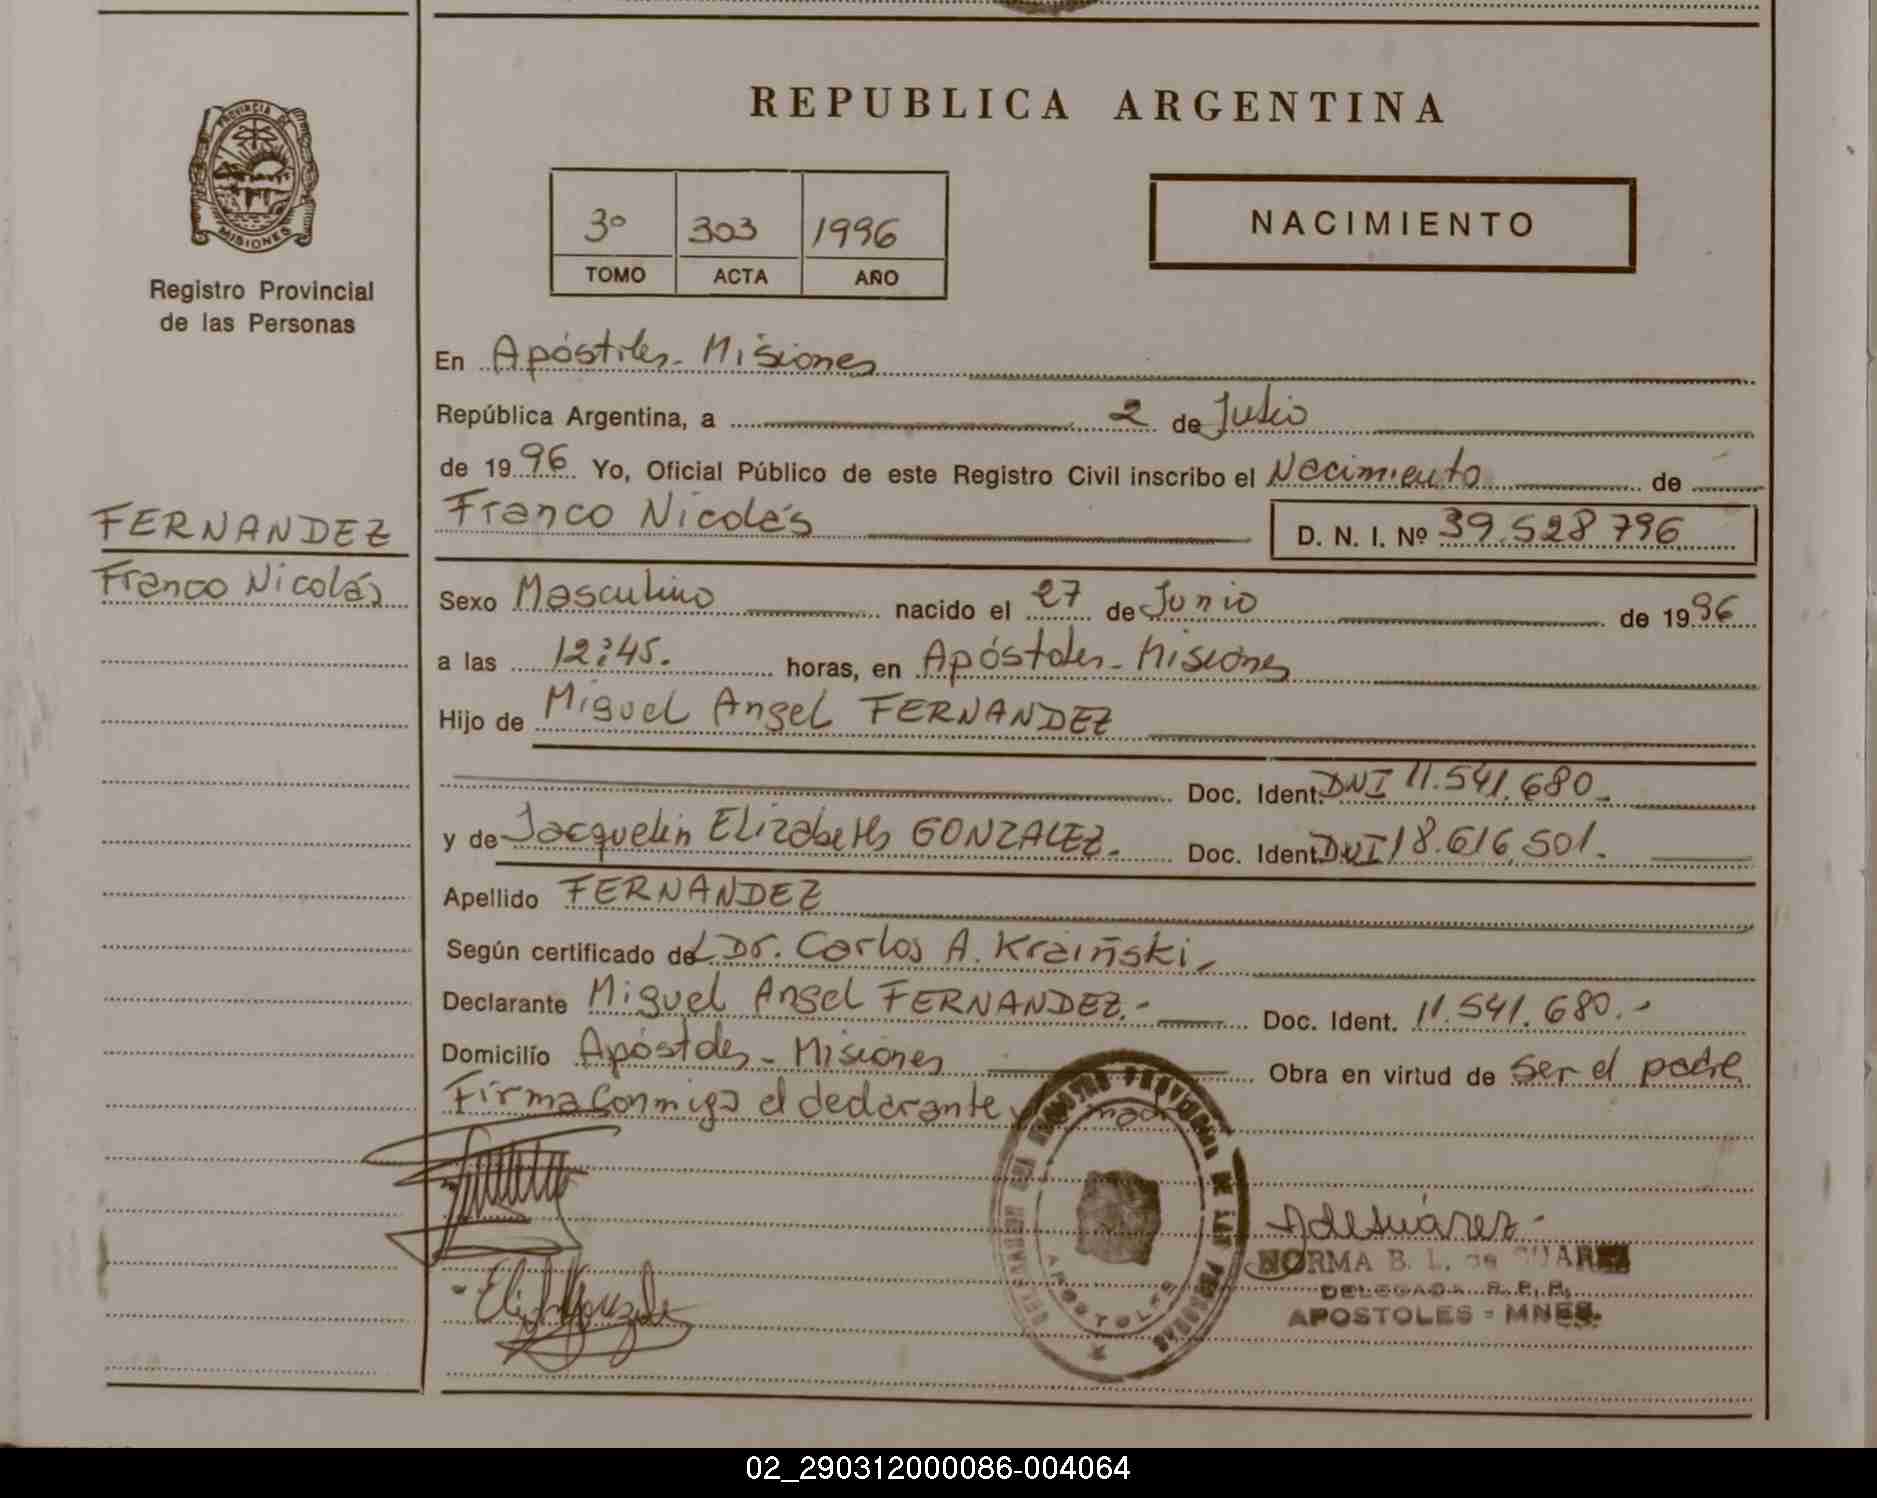 REPUBLICA ARGENTINA
PROVINCIA DE
MISIONES
Registro Provincial
de las Personas
3º 303 1996
TOMO ACTA AÑO
NACIMIENTO
En Apóstoles - Misiones
República Argentina, a 2 de Julio
de 1996 Yo, Oficial Público de este Registro Civil inscribo el Nacimiento de
Franco Nicolás D. N. I. Nº 39.528 796
FERNANDEZ
Franco Nicolás
Sexo Masculino nacido el 27 de Junio de 1996
a las 12:45. horas, en Apóstoles - Misiones
Hijo de Miguel Angel FERNANDEZ
Doc. Ident. DNI 11.541.680.-
y de Jacquelin Elizabeth GONZALEZ.- Doc. Ident. DNI 18.616.501.
Apellido FERNANDEZ
Según certificado del Dr. Carlos A. Kraiñski.-
Declarante Miguel Angel FERNANDEZ.- Doc. Ident. 11.541.680.-
Domicilio Apóstoles - Misiones Obra en virtud de ser el padre
Firma conmigo el declarante y madre
REGISTRO PROVINCIAL DE LAS PERSONAS
APOSTOLES
NORMA B. L. de SUAREZ
DELEGADA R. P. P.
APOSTOLES - MNES.
02_290312000086-004064